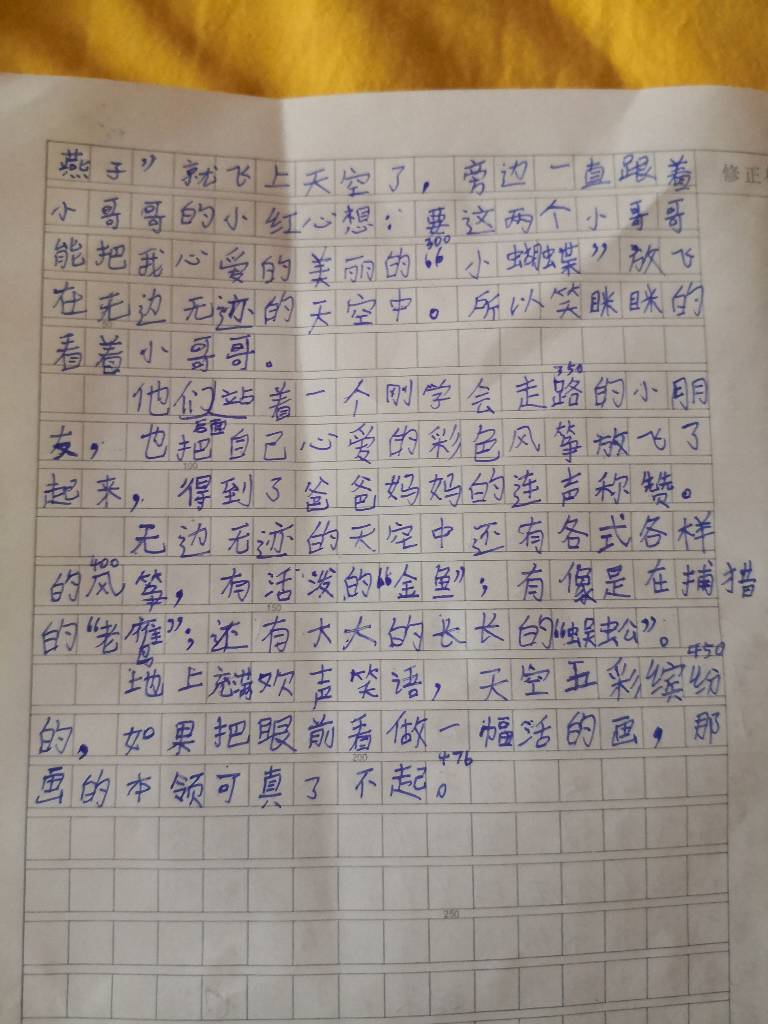 燕子”就飞上天空了，旁边一直跟着
修正
小哥哥的小红心想：要这两个小哥哥
300
能把我心爱的美丽的“小蝴蝶”放飞
在无边无迹的天空中。所以笑眯眯的
看着小哥哥。
350
他们站着一个刚学会走路的小朋
后面
友，也把自己心爱的彩色风筝放飞了
100
起来，得到了爸爸妈妈的连声称赞。
无边无迹的天空中还有各式各样
400
的风筝，有活泼的“金鱼”；有像是在捕猎
150
的“老鹰”；还有大大的长长的“蜈蚣”。
450
地上充满欢声笑语，天空五彩缤纷
的，如果把眼前看做一幅活的画，那
200
476
画的本领可真了不起。
250